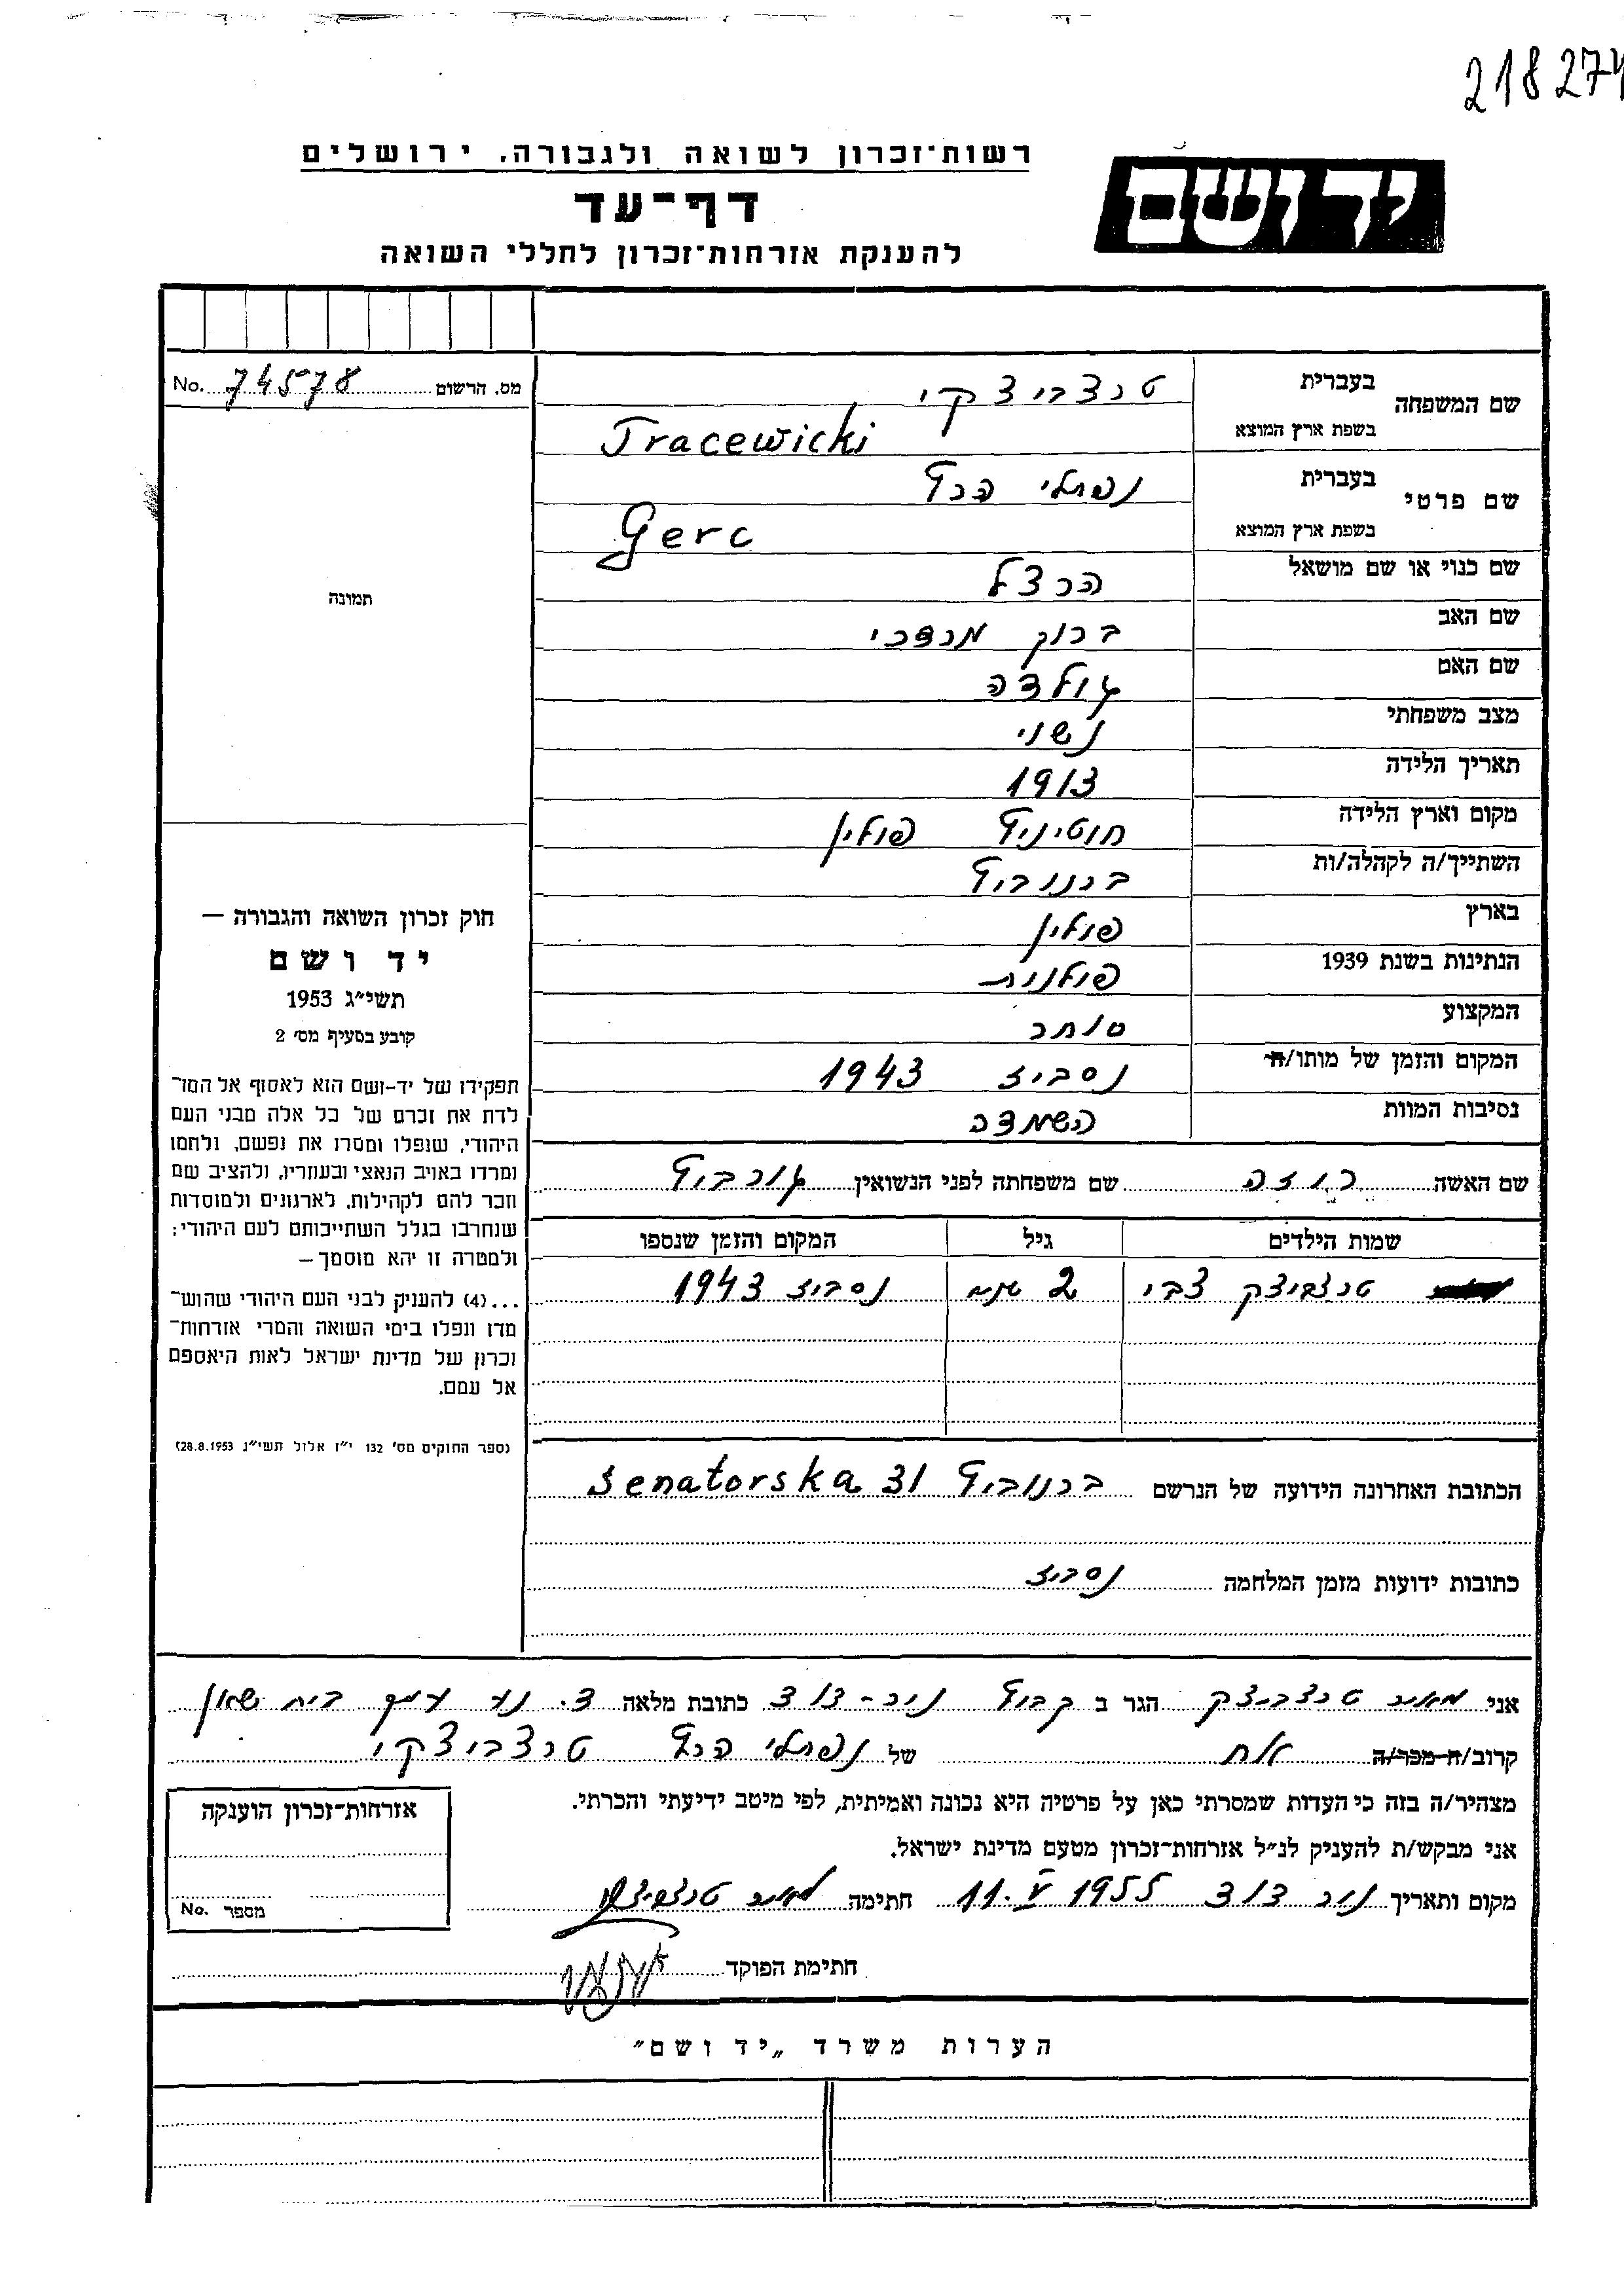 218274
רשות־זכרון לשואה ולגבורה, ירושלים
יד ושם
דף־עד
להענקת אזרחות־זכרון לחללי השואה
מס. הרשום 74578 No.
תמונה
שם המשפחה בעברית טרצביצקי
בשפת ארץ המוצא Tracewicki
שם פרטי בעברית נפתלי הרץ
בשפת ארץ המוצא Gerc
שם כנוי או שם מושאל הרצל
שם האב ברוך מרדכי
שם האם גולדה
מצב משפחתי נשוי
תאריך הלידה 1913
מקום וארץ הלידה חוטיניץ פולין
השתייך/ה לקהלה/ות ברנוביץ
בארץ פולין
הנתינות בשנת 1939 פולנית
המקצוע סוחר
המקום והזמן של מותו/ה נסביז 1943
נסיבות המוות השמדה
שם האשה רוזה שם משפחתה לפני הנשואין גורביץ
שמות הילדים גיל המקום והזמן שנספו
טרצביצקי צבי 2 שנים נסביז 1943
הכתובת האחרונה הידועה של הנרשם ברנוביץ Senatorska 31
כתובות ידועות מזמן המלחמה נסביז
חוק זכרון השואה והגבורה —
יד ושם
תשי״ג 1953
קובע בסעיף מס׳ 2
תפקידו של יד-ושם הוא לאסוף אל המו־
לדת את זכרם של כל אלה מבני העם
היהודי, שנפלו ומסרו את נפשם, נלחמו
ומרדו באויב הנאצי ובעוזריו, ולהציב שם
וזכר להם לקהילות, לארגונים ולמוסדות
שנחרבו בגלל השתייכותם לעם היהודי;
ולמטרה זו יהא מוסמך —
...(4) להעניק לבני העם היהודי שהוש־
מדו ונפלו בימי השואה והמרי אזרחות־
זכרון של מדינת ישראל לאות היאספם
אל עמם.
(ספר החוקים מס׳ 132 י״ז אלול תשי״ג 28.8.1953)
אני מאיר טרצביצקי הגר ב קבוץ ניר-דוד כתובת מלאה ד. נע עמק בית שאן
קרוב/ה מכר/ה אח של נפתלי הרץ טרצביצקי
מצהיר/ה בזה כי העדות שמסרתי כאן על פרטיה היא נכונה ואמיתית, לפי מיטב ידיעתי והכרתי.
אני מבקש/ת להעניק לנ״ל אזרחות־זכרון מטעם מדינת ישראל.
מקום ותאריך ניר דוד 11.V 1955 חתימה מאיר טרצביצקי
חתימת הפוקד
אזרחות־זכרון הוענקה
מספר No.
הערות משרד „יד ושם״